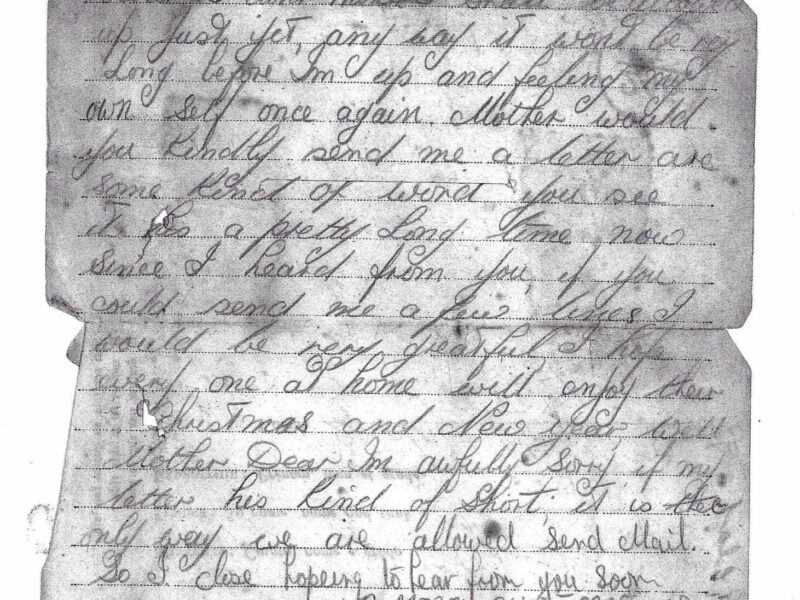 up just yet, any way it wont be very
Long before Im up and feeling my
own self once again. Mother would
you kindly send me a letter are
some kind of word you see
it has a pretty Long time now
since I heard from you if you
could send me a few lines I
would be very greatful I hop
every one at home will enjoy their
Christmas and New year well
Mother Dear Im awfully sorry if my
letter his kind of short, it is the
only way we are allowed send Mail.
So I close hopeing to hear from you soon